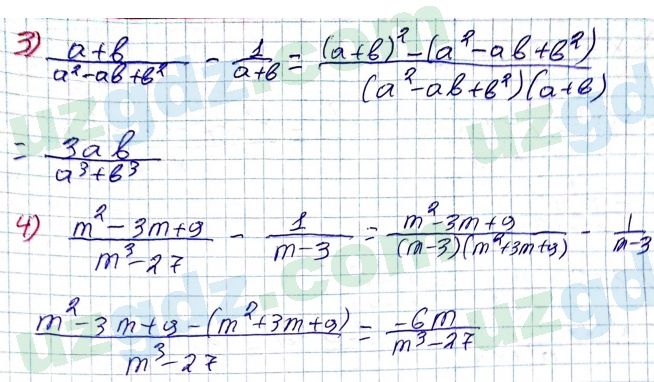 3) \frac{a+b}{a^2-ab+b^2} - \frac{1}{a+b} = \frac{(a+b)^2-(a^2-ab+b^2)}{(a^2-ab+b^2)(a+b)}
= \frac{3ab}{a^3+b^3}
4) \frac{m^2-3m+9}{m^3-27} - \frac{1}{m-3} = \frac{m^2-3m+9}{(m-3)(m^2+3m+9)} - \frac{1}{m-3}
\frac{m^2-3m+9-(m^2+3m+9)}{m^3-27} = \frac{-6m}{m^3-27}
uzgdz.com